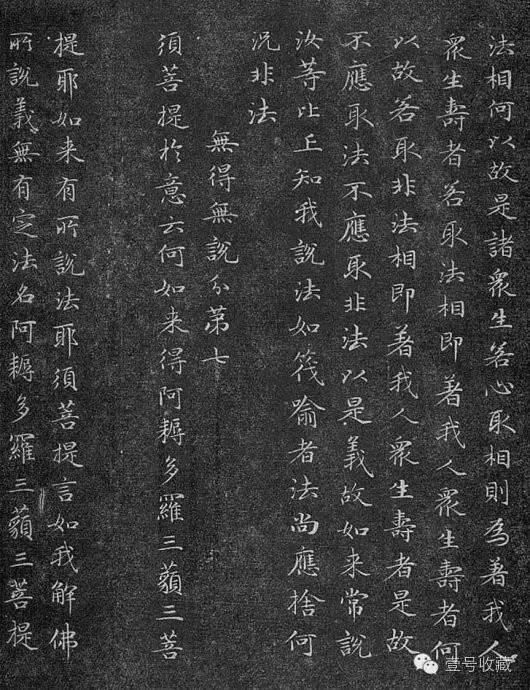 法相何以故是諸衆生若心取相則為著我人
衆生壽者若取法相即著我人衆生壽者何
以故若取非法相即著我人衆生壽者是故
不應取法不應取非法以是義故如来常說
汝等比丘知我說法如筏喻者法尚應捨何
況非法
無得無說分第七
須菩提於意云何如来得阿耨多羅三藐三菩
提耶如来有所說法耶須菩提言如我解佛
所說義無有定法名阿耨多羅三藐三菩提
壹号收藏